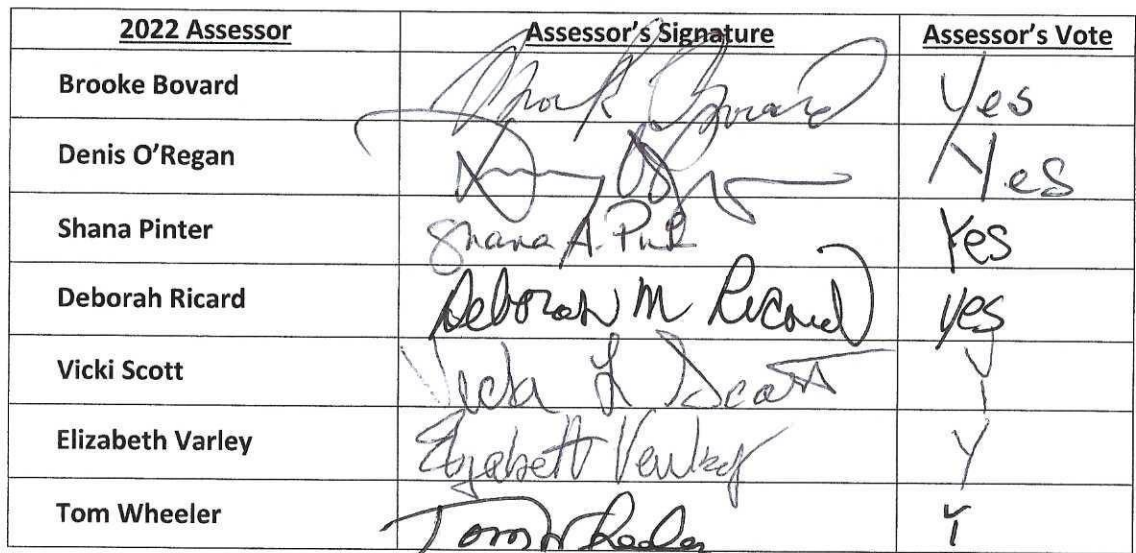 2022 Assessor Assessor's Signature Assessor's Vote
Brooke Bovard Brook Bovard Yes
Denis O'Regan Yes
Shana Pinter Shana A. Pint Yes
Deborah Ricard Deborah M Ricard yes
Vicki Scott Vicki L Scott Y
Elizabeth Varley Elizabeth Varley Y
Tom Wheeler Tom Wheeler Y